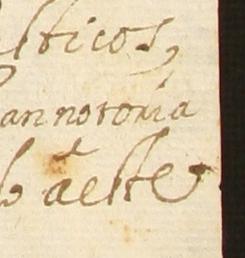 lticos,
an notoria
aeste